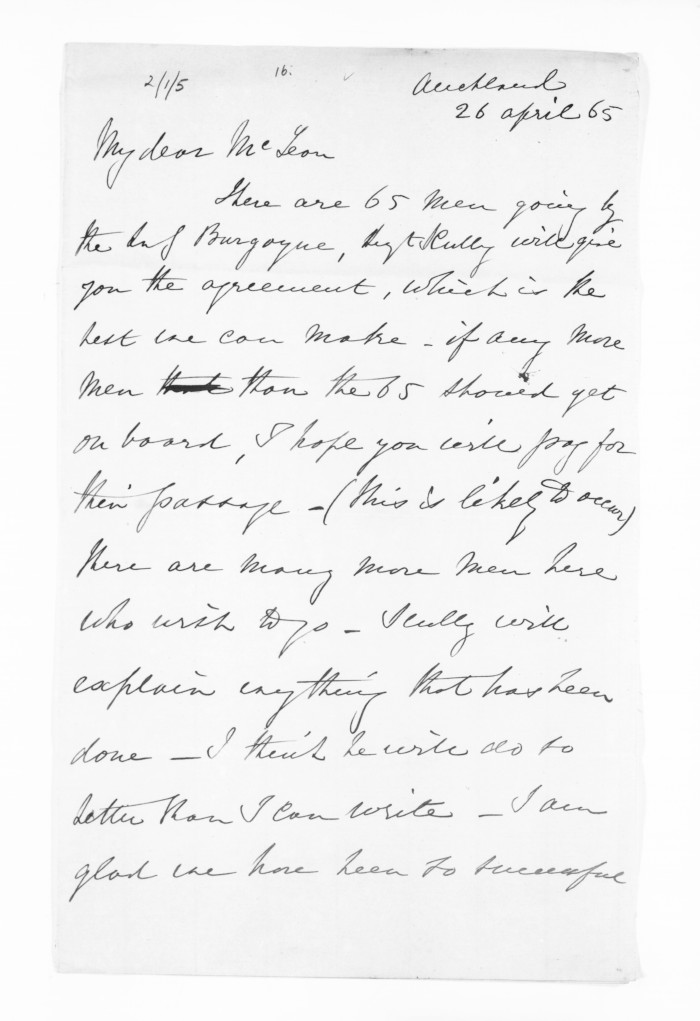 2/1/5
16.
Auckland
26 april 65
My dear McLean
There are 65 men going by
the Burgoyne, Sergt Scully will give
you the agreement, which is the
best we can make - if any more
men than the 65 should get
on board, I hope you will pay for
their passage - (this is likely to occur)
there are many more men here
who wish to go - Scully will
explain everything that has been
done - I think he will do so
better than I can write - I am
glad we have been so successful